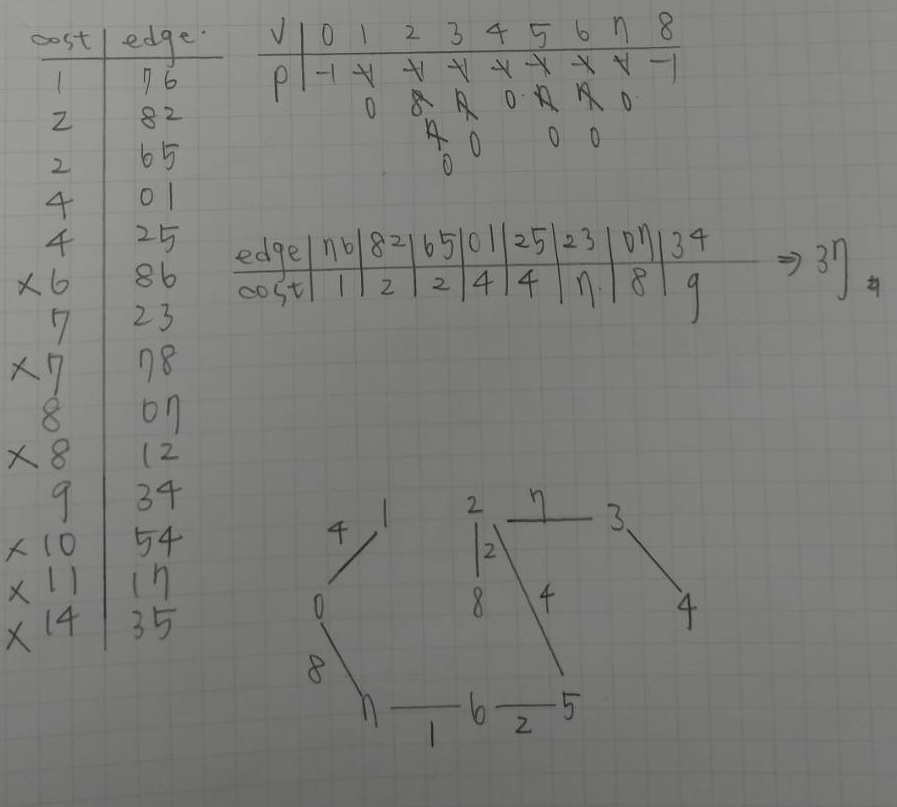 cost edge.
1 76
2 82
2 65
4 01
4 25
×6 86
7 23
×7 78
8 07
×8 12
9 34
×10 54
×11 17
×14 35
V 0 1 2 3 4 5 6 7 8
P -1 -1 -1 -1 -1 -1 -1 -1 -1
0 8 7 0 7 7 0
7 0 0 0
0
edge 76 82 65 01 25 23 07 34
cost 1 2 2 4 4 7 8 9 ⇒ 37
1 2 7 3
4 2
0 8 4 4
8
7 6 5
1 2